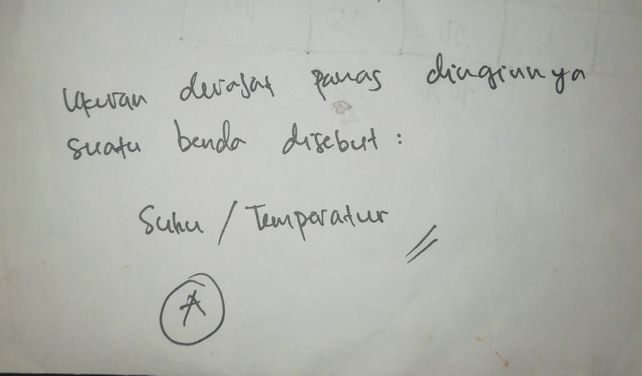 Ukuran derajat panas dinginnya
suatu benda disebut :
Suhu / Temperatur
A